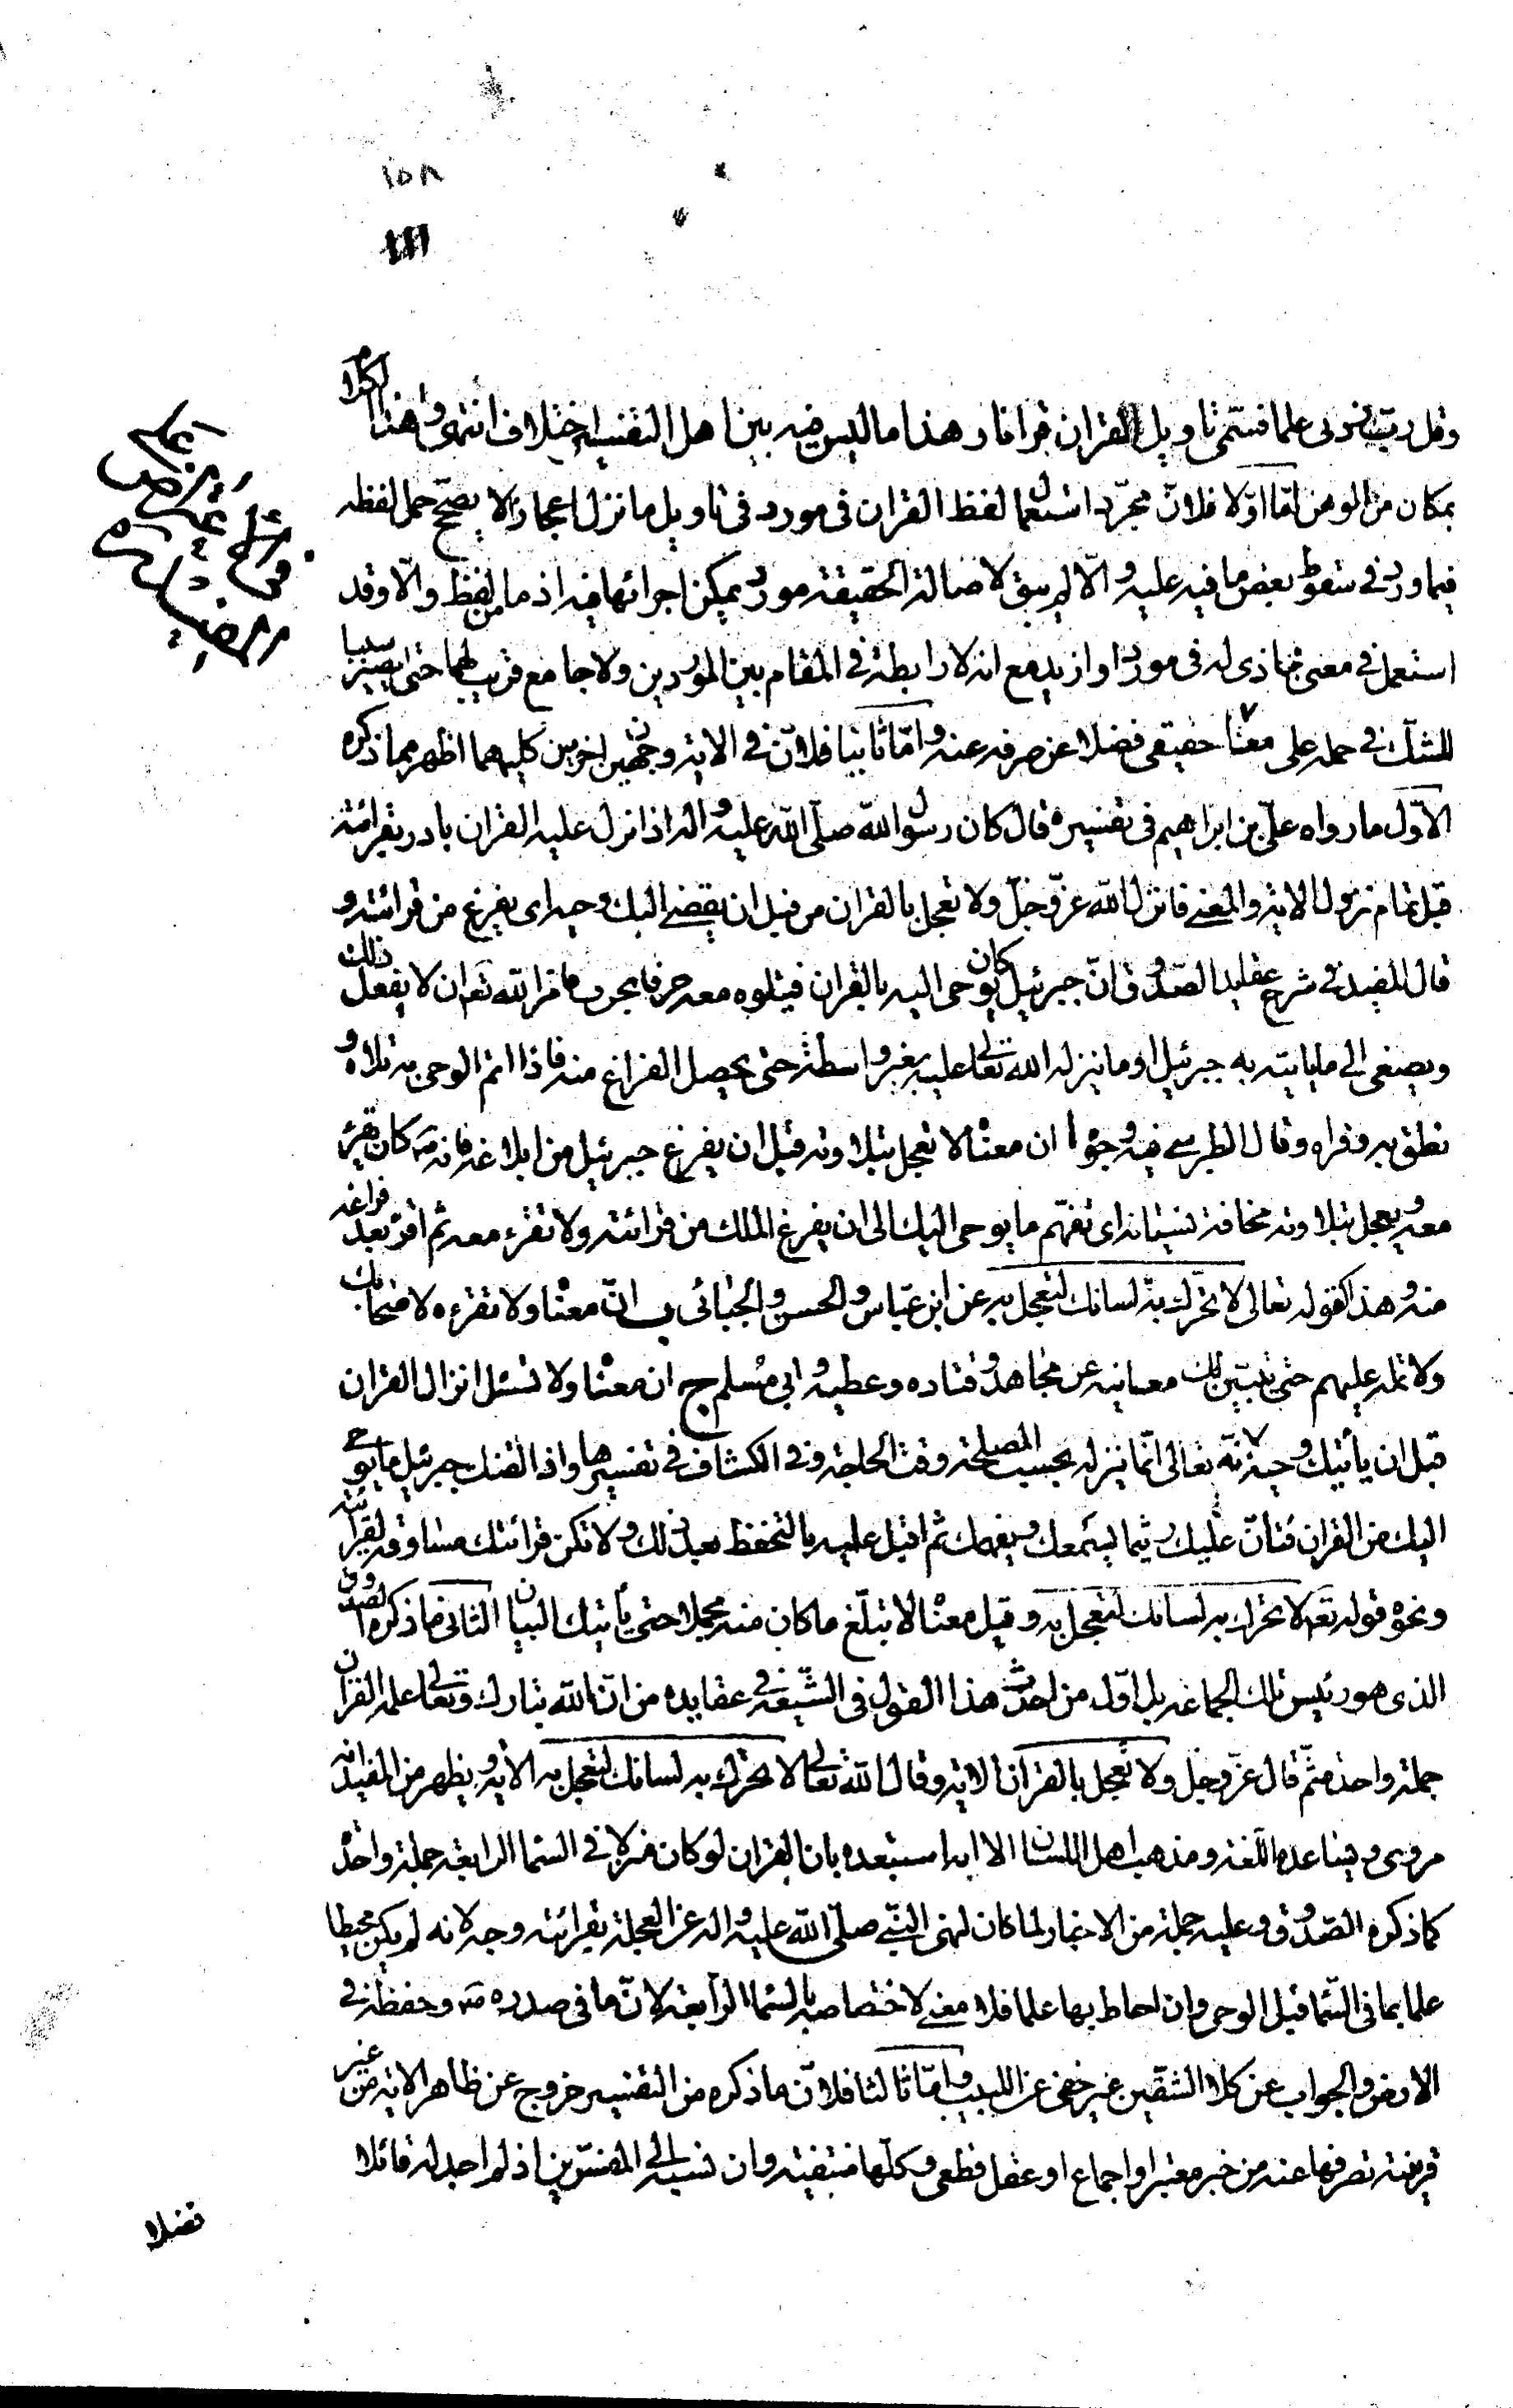 ١٥٨
وقل رب زدنى علما فسمى تاويل القران قرانا وهذا ما ليس فيه بين اهل التفسير اختلاف انتهى وهذا الكلام
بمكان من الوهن اما اوّلا فلانّ مجرّد استعمال لفظ القران فى مورد فى تاويل ما نزل اعجازا لا يصحّح حمل لفظه
فيما ورد فى سقوط بعض ما فيه عليه والّا لم يبق لاصالة الحقيقة مورد يمكن اجرائها فيه اذ ما من لفظ والّا وقد
استعمل فى معنى مجازى له فى مورد او ازيد مع انه لا رابطة فى المقام بين الموردين ولا جامع قريب لهما حتى يصير سببا
للشك فى حمله على معناه حقيقى فضلا عن صرفه عنه وامّا ثانيا فلانّ فى الاية وجهين اخرين كليهما اظهر مما ذكره
الاوّل ما رواه علىّ بن ابراهيم فى تفسيره قال كان رسول الله صلّى الله عليه واله اذا نزل عليه القران بادر بقرائته
قبل تمام نزول الاية والمعنى فانزل الله عزّ وجلّ ولا تعجل بالقران من قبل ان يقضى اليك وحيه اى يفرغ من قرائته و
قال المفيد فى شرح عقايد الصدوق انّ جبرئيل كان يوحى اليه بالقران فيتلوه معه حرفا بحرف فامر الله تع ان لا يفعل ذلك
ويصغى الى ما ياتيه به جبرئيل او ما ينزله الله تعالى عليه بغير واسطة حتى يحصل الفراغ منه فاذا اتم الوحى به تلاه و
نطق به وقراه وقال الطبرسى فيه وجوه ا ان معناه لا تعجل بتلاوته قبل ان يفرغ جبرئيل من ابلاغه فانه ص كان يقرء
معه ويعجل بتلاوته مخافة نسيانه اى تفهّم ما يوحى اليك الى ان يفرغ الملك من قرائته ولا تقرء معه ثم اقرء بعد فراغه
منه وهذا كقوله تعالى لا تحرّك به لسانك لتعجل به عن ابن عباس والحسن والجبائى ب انّ معناه ولا تقرءه لاصحابك
ولا تمله عليهم حتى يتبيّن لك معانيه عن مجاهد وقتاده وعطيه وابى مسلم ج ان معناه ولا تسئل انزال القران
قبل ان يأتيك وحيه لانّه تعالى انّما ينزله بحسب المصلحة وقت الحاجة وفى الكشاف فى تفسيرها واذا لقنك جبرئيل ما يوحى
اليك من القران فتأنّ عليك ريثما يسمعك ويفهمك ثم اقبل عليه بالتحفظ بعد ذلك ولا تكن قرائتك مساوقة لقرائته
ونحوه قوله تع لا تحرك به لسانك لتعجل به وقيل معناه لا تبلّغ ما كان منه مجملا حتى يأتيك البيان الثانى ما ذكره الصدوق
الذى هو رئيس تلك الجماعة بل اوّل من احدث هذا القول فى الشيعة فى عقايده من انّ الله تبارك وتعالى علمه القران
جملة واحدة ثمّ قال عزّ وجلّ ولا تعجل بالقران الاية وقال الله تعالى لا تحرك به لسانك لتعجل به الاية ويظهر من المفيد انه
مروى ويساعده اللّغة ومذهب اهل اللسان الا انه استبعده بان القران لو كان منزلا فى السّماء الرابعة جملة واحدة
كما ذكره الصّدوق وعليه جملة من الاخبار لما كان لنهى النبّى صلّى الله عليه واله عن العجلة بقرائته وجه لانه لم يكن محيطا
علما بما فى السّماء قبل الوحى وان احاط بها علما فلا معنى لاختصاصه بالسّماء الرّابعة لانّ ما فى صدره ص وحفظه فى
الارض والجواب عن كلا الشقين غير خفى عن اللبيب وامّا ثالثا فلانّ ما ذكره من التفسير خروج عن ظاهر الاية من غير
قرينة تصرفها عنه من خبر معتبر او اجماع او عقل قطعى وكلّها منتفية وان نسبه الى المفسّرين اذ لم اجد له قائلا
فضلا